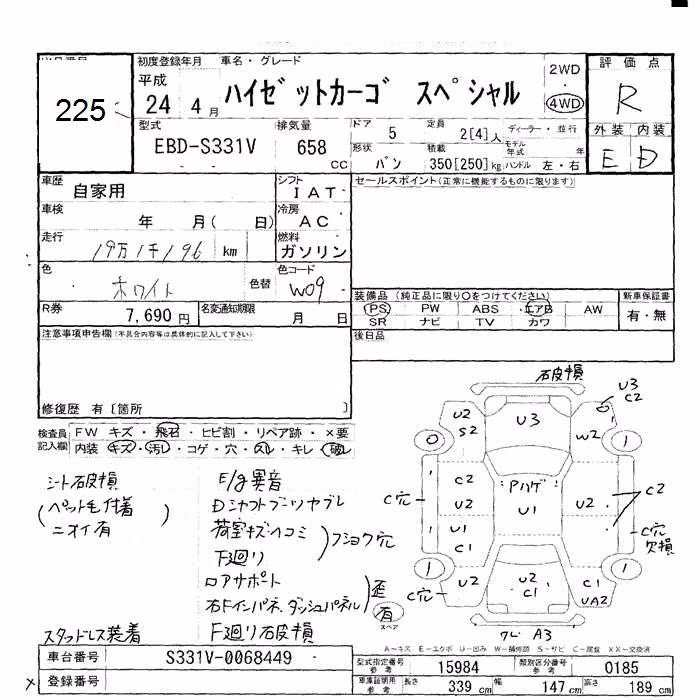 出品番号
225
初度登録年月
平成
24 4 月
車名・グレード
ハイゼットカーゴ スペシャル
2WD
4WD
評価点
R
外装 内装
E D
型式
EBD-S331V
排気量
658
CC
ドア
5
定員
2[4]人
ディーラー・並行
形状
バン
積載
350[250]kg
モデル年式 年
ハンドル 左・右
車歴
自家用
シフト
IAT
車検
年 月( 日)
冷房
AC
走行
19万1千196 km
燃料
ガソリン
色
ホワイト
色替
色コード
W09
R券
7,690円
名変通知期限
月 日
セールスポイント(正常に機能するものに限ります)
装備品 (純正品に限り○をつけてください)
PS PW ABS エアB AW
SR ナビ TV カワ
新車保証書
有・無
後日品
注意事項申告欄(不具合内容等は具体的に記入して下さい)
修復歴 有〔箇所 〕
検査員記入欄
FW キズ・飛石・ヒビ割・リペア跡・×要
内装 キズ・汚・コゲ・穴・スレ・キレ・破
シート破損
(ペット毛付着
ニオイ有)
スタッドレス装着
E/g異音
Dシャフトブーツヤブレ
荷室キズヘコミ
下廻り
フショク穴
ロアサポート
右Fインパネ.ダッシュパネル
歪
有
スペア
F廻り石破損
石破損
U3
C2
U2
S2
U3
W2
0
1
C2
U2
Pハゲ
U1
U2
C2
C穴
U1
C1
C穴
欠損
1
1
U2
U2
C1
C1
UA2
C穴
ワレ A3
A－キズ E－エクボ U－凹み W－補修跡 S－サビ C－腐蝕 XX－交換済
車台番号
S331V-0068449
登録番号
型式指定番号
参考
15984
類別区分番号
参考
0185
車庫証明用
参考
長さ 339 cm 幅 147 cm 高さ 189 cm